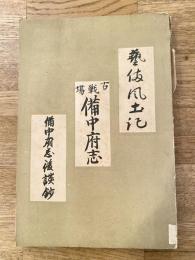 藝備風土記
古戰場 備中府志
備中府志後談鈔